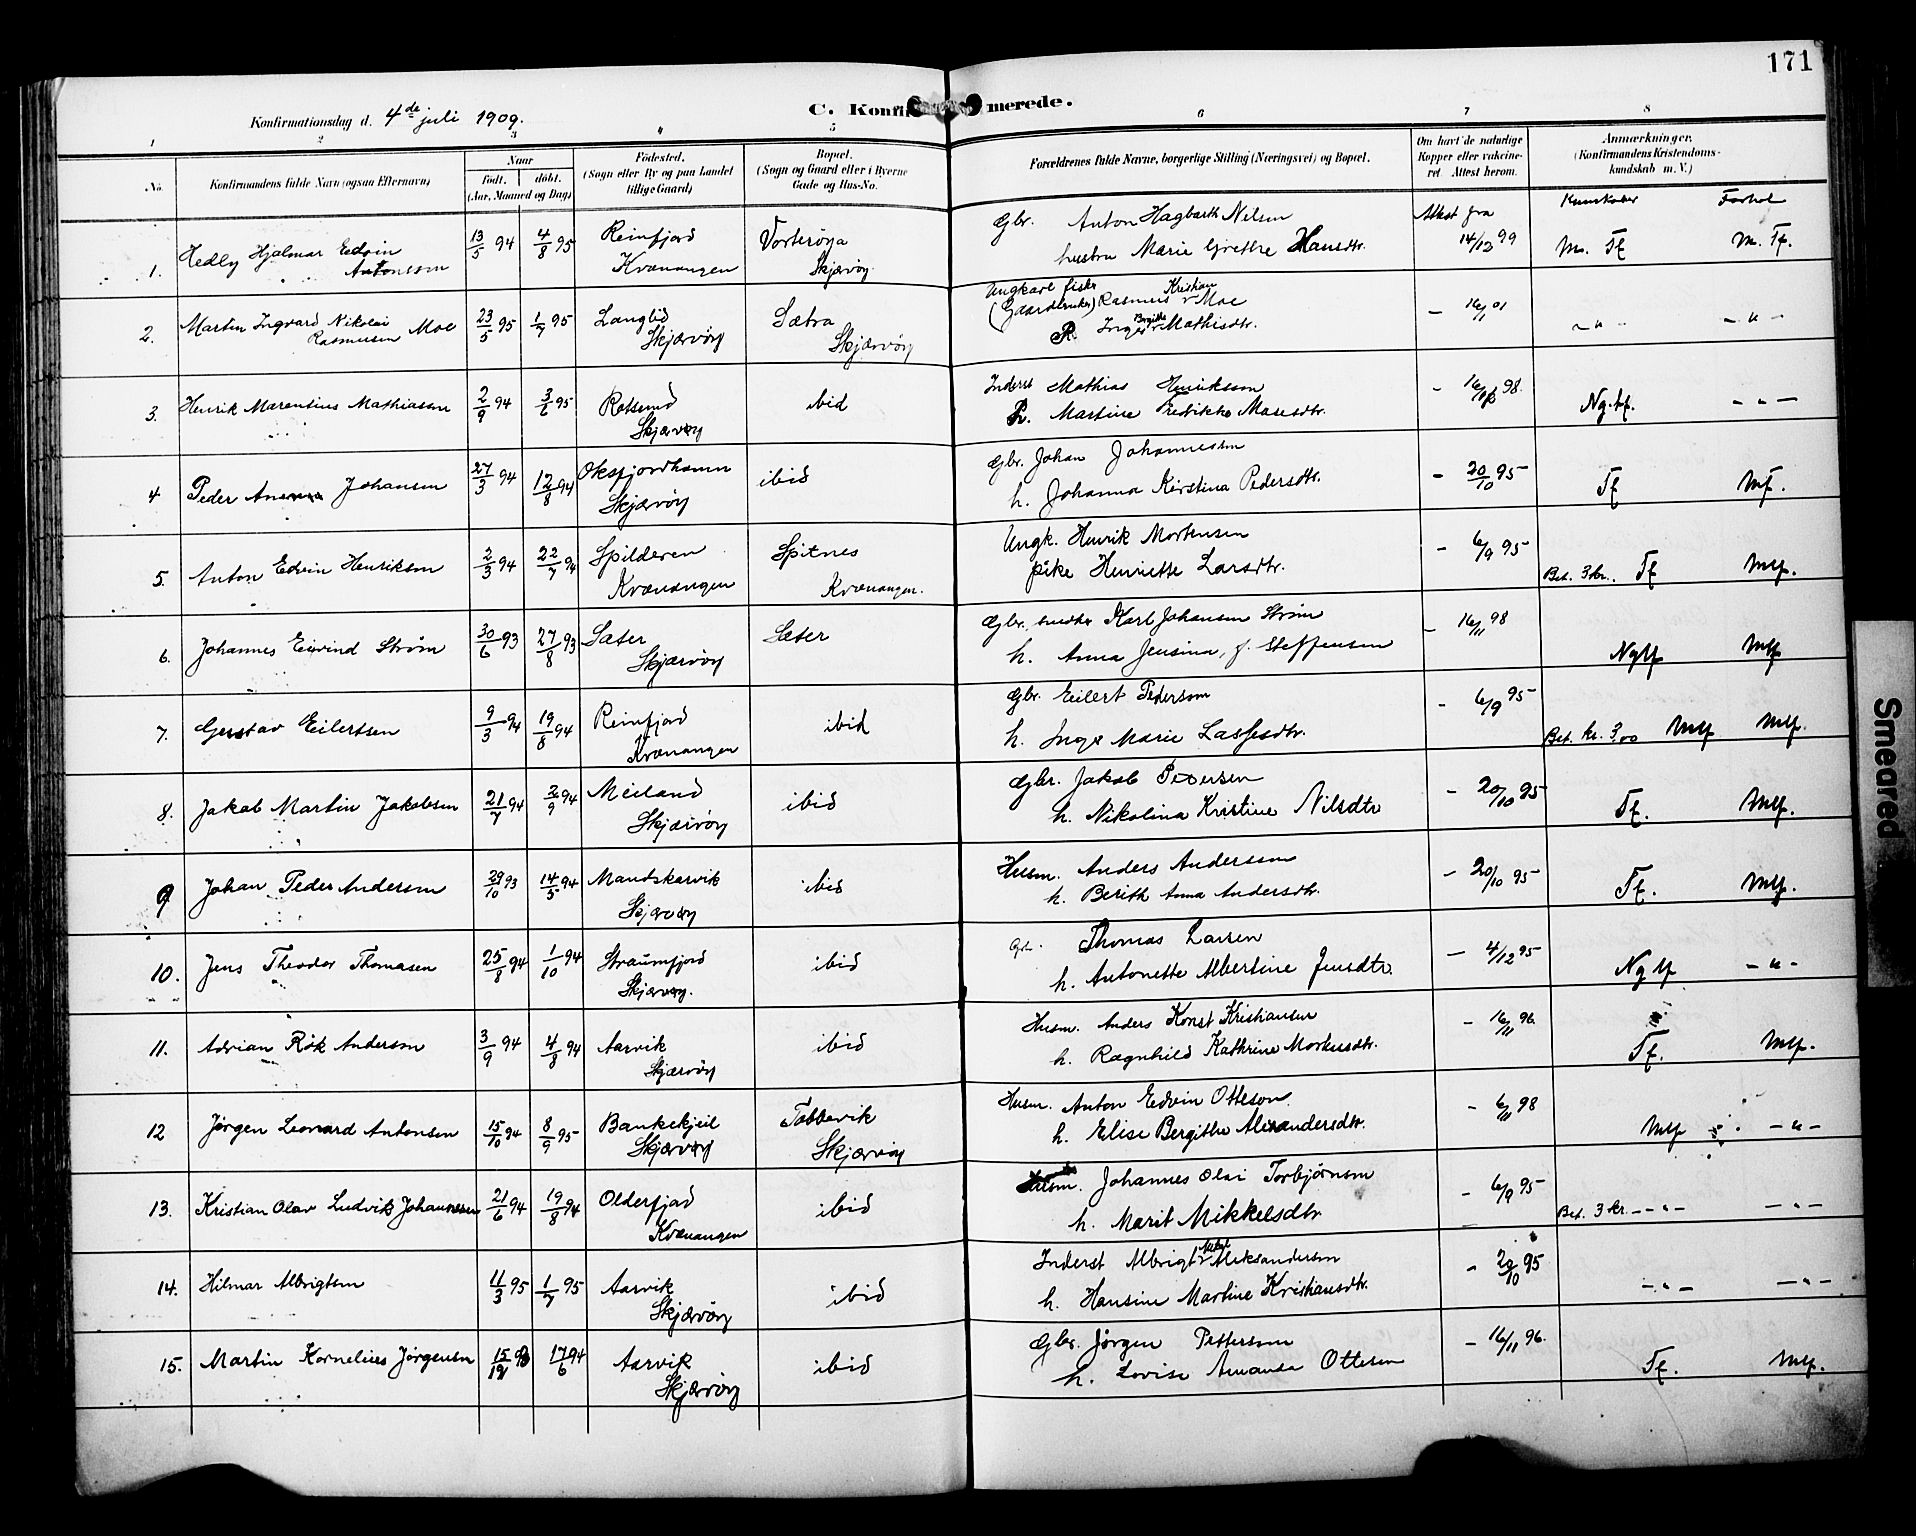 171
C. Konfirmerede.
Konfirmationsdag d. 4de juli 1909.
1 2 3 4 5 6 7 8
No. Konfirmandens fulde Navn (ogsaa Efternavn) Naar født. døbt. (Aar, Maaned og Dag) Fødested. (Sogn eller By og paa Landet tillige Gaard) Bopæl. (Sogn og Gaard eller i Byerne Gade og Hus-No. Forældrenes fulde Navne, borgerlige Stilling (Næringsvei) og Bopæl. Om havt de naturlige Kopper eller vakcineret. Attest herom. Anmærkninger. (Konfirmandens Kristendomskundskab m. V.)
Kunskaber Forhol
1. Hedly Hjalmar Edvin Antonsen 13/5 94 4/8 95 Reinfjord Kvænangen Vorterøya Skjærvøy Gbr. Anton Hagbarth Nilsen Attest fra
hustru Marie Grethe Hansdtr. 14/12 99 M. Tf M. Tf.
2. Martin Ingvard Nikolai Rasmussen Moe 23/5 95 1/7 95 Langlid Skjærvøy Sætra Skjærvøy Ungkarl fisker (Gaardbruker) Rasmus Kristian Moe - 16/1 01 - " - - " -
P. Inger Bergitte Mathisdtr.
3. Henrik Marentius Mathiassen 2/9 94 3/6 95 Rotsund Skjærvøy ibid Inderst Mathias Henriksen - 98. Ng. tf. - " -
h. Martine Fredrikke Masesdtr.
4 Peder Johansen 27/3 94 12/8 94 Oksfjordhamn Skjærvøy ibid Gbr. Johan Johannessen - 20/10 95 Tf Mf.
h. Johanna Kirstina Pedersdtr.
5. Anton Edvin Henriksen 2/3 94 22/7 94 Spilderen Kvænangen Spitnes Kvænangen. Ungk. Henrik Mortensen - 6/9 95
pike Henriette Larsdtr. Bet. 3 kr. Tf Mtf.
6. Johannes Eivind Strøm 30/6 93 27/8 93 Sæter Skjærvøy Sæter Gbr. smed Karl Johansen Strøm - 16/11 98
h. Anna Jensina, f. Steffensen Ngtf Mtf
7. Gustav Eilertsen 9/3 94 19/8 94 Reinfjord Kvænangen ibid Gbr. Eilert Pedersen - 6/9 95
h. Inga Marie Lassesdtr. Bet. kr. 3,00 Mtf Mtf.
8. Jakob Martin Jakobsen 21/7 94 2/9 94 Meiland Skjærvøy ibid Gbr. Jakob Pedersen - 20/10 95 Tf. Mtf.
h. Nikolina Kristine Nilsdtr
9 Johan Peder Andersen 29/10 93 14/5 94 Mandskarvik Skjærvøy ibid Husm. Anders Andersen - 20/10 95 Tf. Mtf.
h. Berith Anna Andersdtr.
10. Jens Theodor Thomasen 25/8 94 1/10 94 Straumfjord Skjærvøy. ibid Gbr. Thomas Larsen - 4/12 95 Ngtf - " -
h. Antonette Albertine Jensdtr.
11. Adrian Røk Andersen 3/9 94 4/8 94 Aarvik Skjærvøy ibid Husm. Anders Konst Kristiansen - 16/11 96.
h. Ragnhild Kathrine Markusdtr. Tf. Mtf.
12 Jørgen Leonard Antonsen 15/10 94 8/9 95 Bankekjeil Skjærvøy Tabbevik Skjærvøy Husm. Anton Edvin Otteson. - 6/11 98
h. Elise Bergithe Alexandersdtr. Mtf - " -
13. Kristian Olav Ludvik Johannesen 21/6 94 19/8 94 Olderfjord Kvænangen ibid Husm. Johannes Olai Torbjørnsen - 6/9 95
h. Marit Mikkelsdtr Bet. 3 kr. - " - - " -
14. Hilmar Albrigtsen 11/3 95 1/7 95 Aarvik Skjærvøy ibid Inderst Albrigt Aleksandersen - 20/10 95
h. Hansine Martine Kristiansdtr. - " - - " -
15. Martin Kornelius Jørgensen 15/12 93 17/6 94 Aarvik Skjærvøy ibid Gbr. Jørgen Pettersen - 16/11 96.
h. Lovise Amanda Ottesen Tf. Mtf.
Smeared